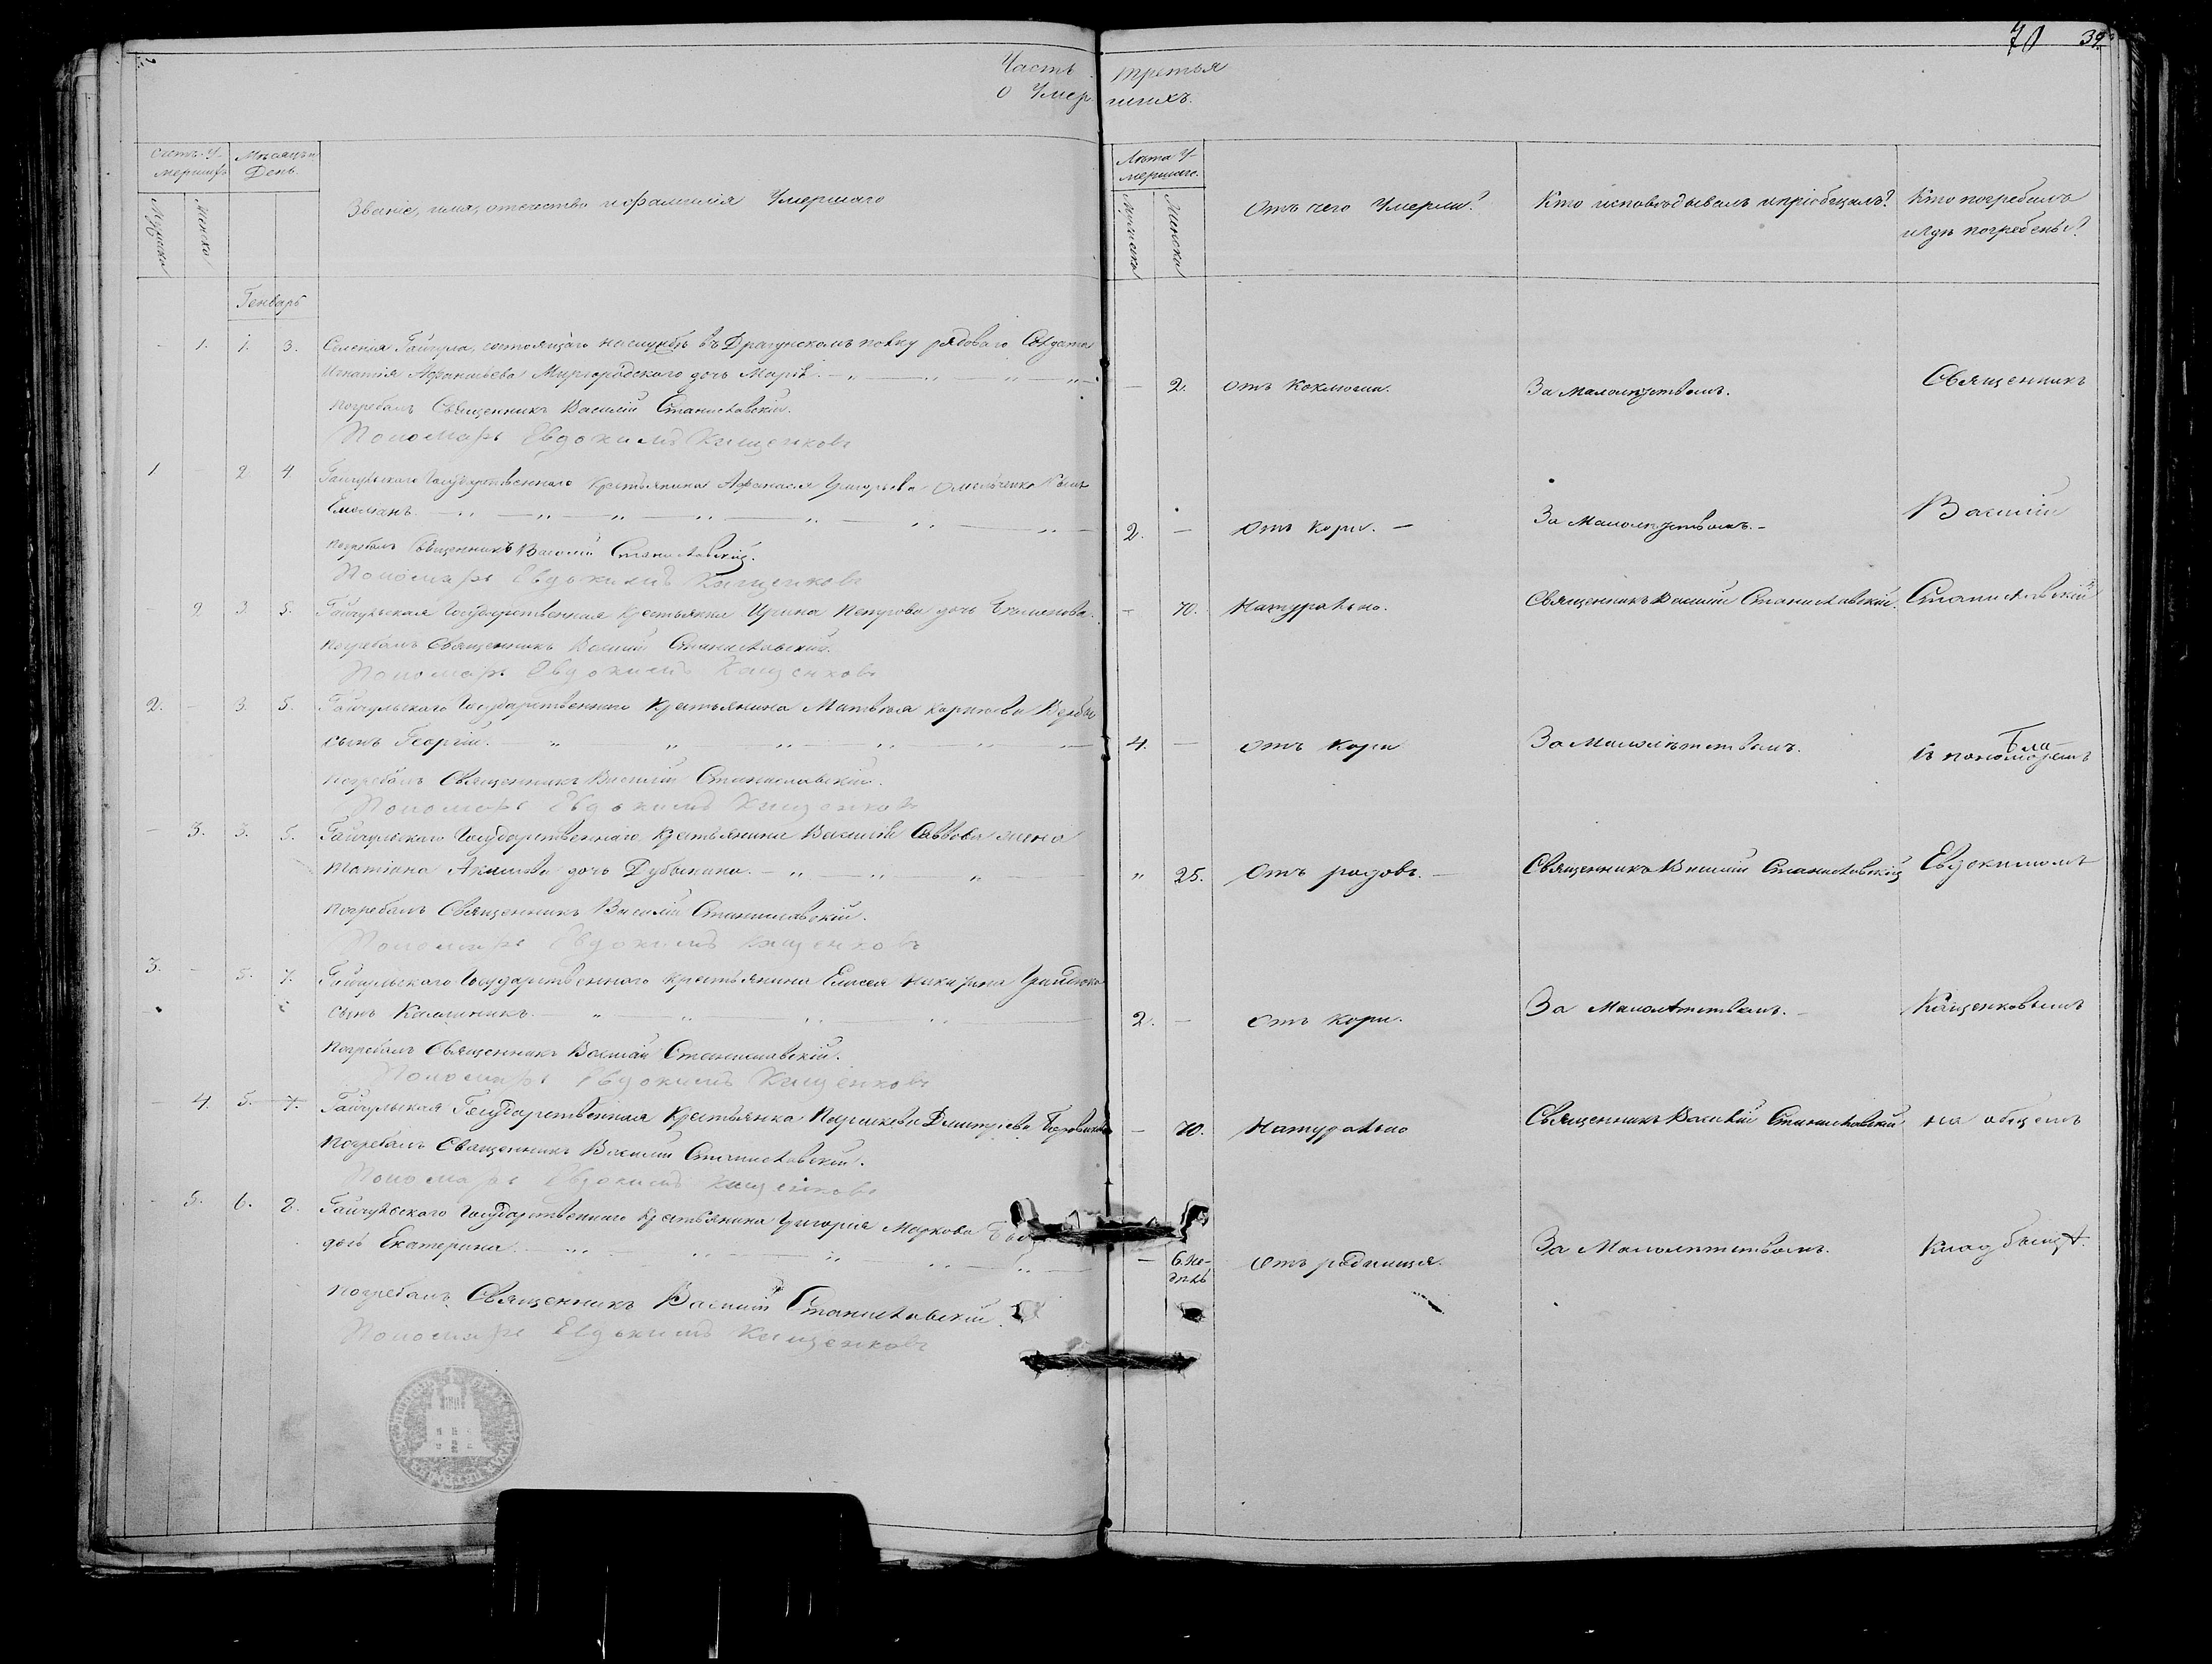 70 39.
Часть третья
О Умер. шихъ.
Счетъ У-
мершихъ
Мѣсяцъ и
День.
Мужеска
Женска
Званіе, имя, отечество и фамилія Умершаго
Лѣта У-
мершаго.
Мужеска
Женска
Отъ чего Умерли?
Кто исповѣдывалъ и пріобщалъ?
Кто погребалъ
и гдѣ погребены?
Генварь
- 1. 1. 3. Селенія Гайчула, состоящаго на службѣ въ Драгунскомъ полку рядоваго Солдата
Игнатія Афанасьева Миргородскаго дочь Марія. - 2. отъ коклюша. За малолѣтствомъ. Священникъ
Погребалъ Священникъ Василій Станиславскій.
Пономарь Евдокимъ Кищенковъ
1. - 2 4. Гайчульскаго Государственнаго Крестьянина Афанасія Григорьева Омельченка сынъ
Емельянъ. 2. - Отъ кори. - За малолѣтствомъ. - Василій
Погребалъ Священникъ Василій Станиславскій.
Пономарь Евдокимъ Кищенковъ
- 2 3. 5. Гайчульская Государственная Крестьянка Ирина дочь - 70. Натурально. Священникъ Василій Станиславскій. Станиславскій
Погребалъ Священникъ Василій Станиславскій.
Пономарь Евдокимъ Кищенковъ
2. - 3. 5. Гайчульскаго Государственнаго Крестьянина Матвѣя Карпова
сынъ Георгій. 4. - отъ кори За Малолѣтствомъ. съ пономаремъ
Погребалъ Священникъ Василій Станиславскій.
Пономарь Евдокимъ Кищенковъ
- 3. 3. 5. Гайчульскаго Государственнаго Крестьянина Василія Саввова жена
Татіана Акимова дочь " 25. Отъ родовъ. - Священникъ Василій Станиславскій Евдокимомъ
Погребалъ Священникъ Василій Станиславскій.
Пономарь Евдокимъ Кищенковъ
3. - 5. 7. Гайчульскаго Государственнаго Крестьянина Елисея
сынъ Каллиникъ. 2. - отъ кори. За Малолѣтствомъ. - Кищенковымъ
Погребалъ Священникъ Василій Станиславскій.
Пономарь Евдокимъ Кищенковъ
- 4. 5. 7. Гайчульская Государственная Крестьянка Параскева Дмитріева - 70. Натурально Священникъ Василій Станиславскій на общемъ
Погребалъ Священникъ Василій Станиславскій.
Пономарь Евдокимъ Кищенковъ
- 5. 6. 8. Гайчульскаго Государственнаго Крестьянина Григорія Маркова
дочь Екатерина. - 6. не-
дѣль Отъ роднища. За Малолѣтствомъ. Кладбищѣ.
Погребалъ Священникъ Василій Станиславскій.
Пономарь Евдокимъ Кищенковъ